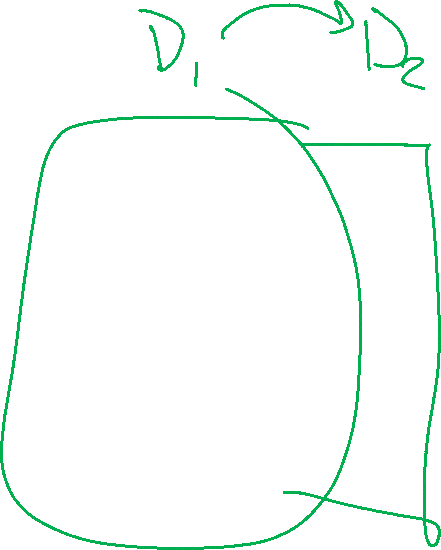 D₁ → D₂